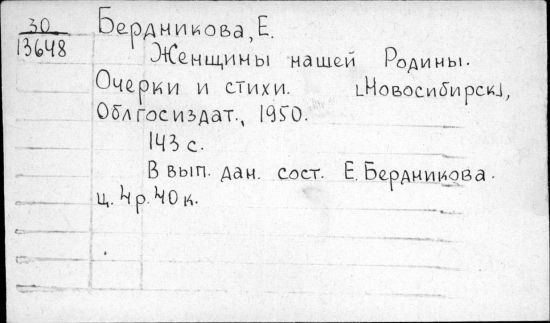 30
13648
Бердникова, Е.
Женщины нашей Родины.
Очерки и стихи. [Новосибирск],
Облгосиздат., 1950.
143 с.
В вып. дан. сост. Е. Бердникова.
ц. 4 р. 40 к.